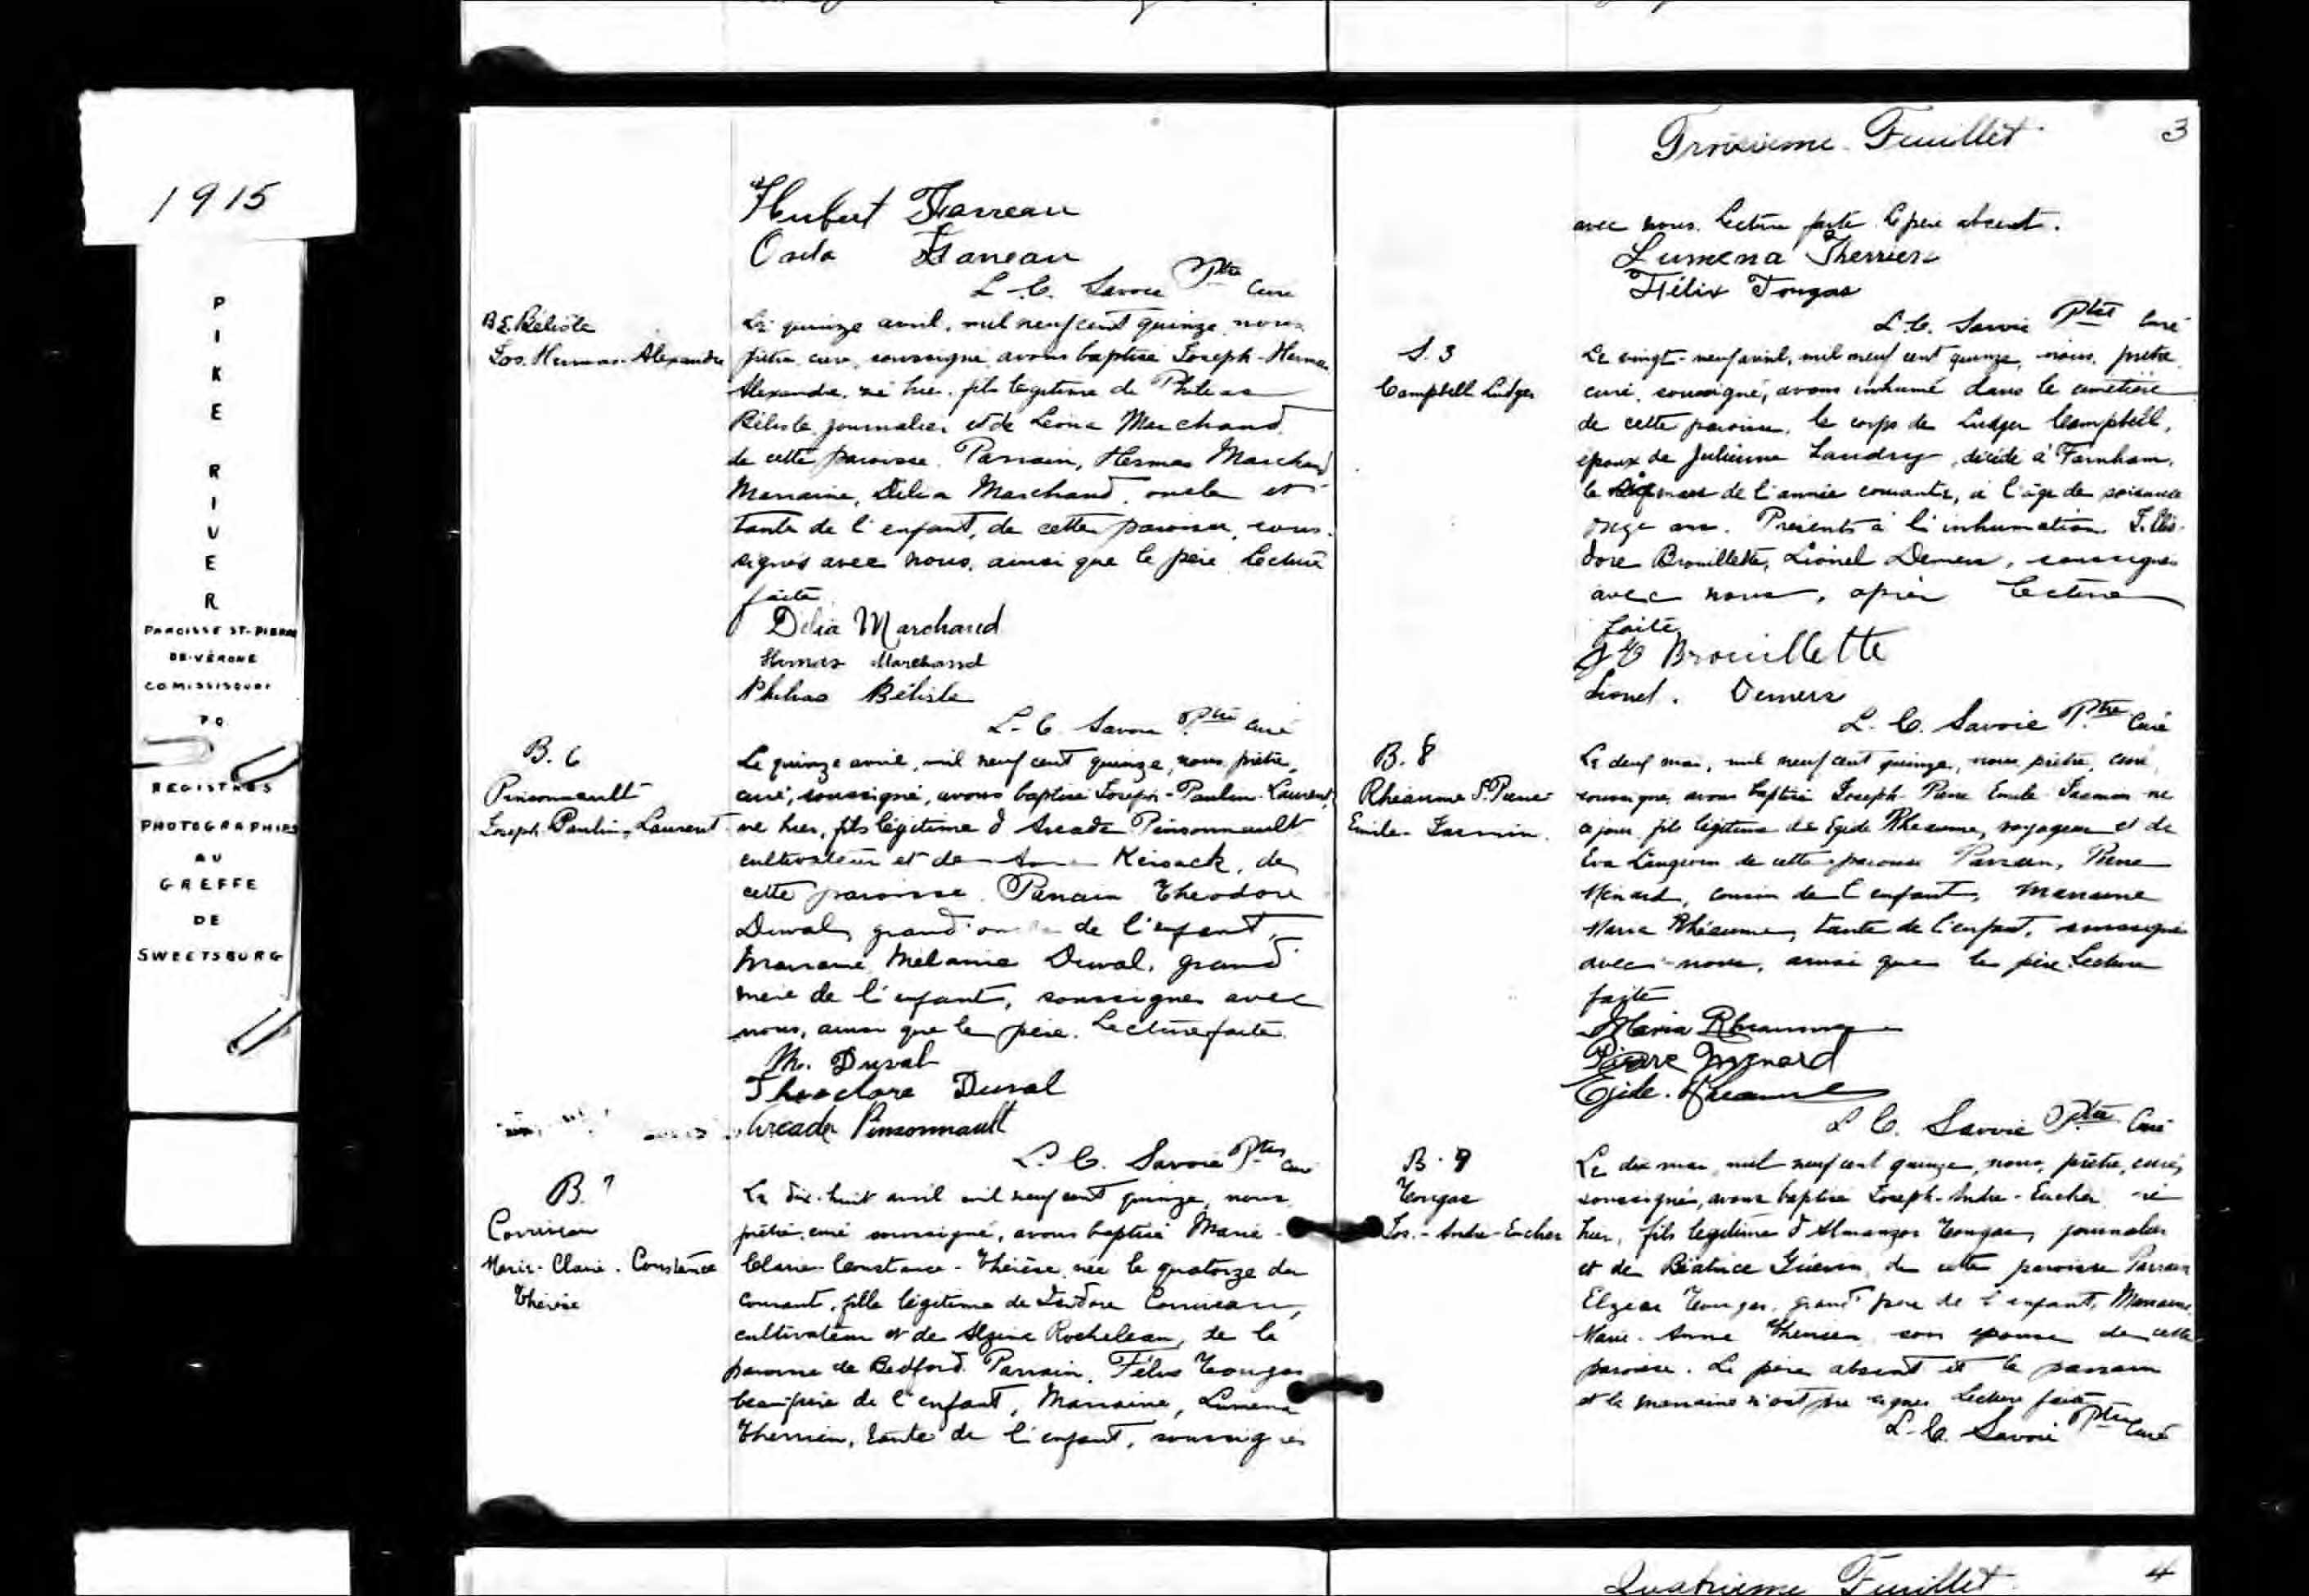 1915
PIKE RIVER
PAROISSE ST-PIERRE
DE-VÉRONE
CO MISSISQUOI
P Q
REGISTRES
PHOTOGRAPHIES
AU
GREFFE
DE
SWEETSBURG
Hubert Farreau
L. C. Savoie Ptre Curé
B 5. Bélisle
Jos. Hermas-Alexandre
Le quinze avril, mil neuf cent quinze, nous
prêtre curé, soussigné avons baptisé Joseph-Hermas
Alexandre, né hier, fils légitime de Phileas
Bélisle, journalier et de Léona Marchand,
de cette paroisse. Parrain, Hermas Marchand
Marraine, Délia Marchand, oncle et
tante de l'enfant, de cette paroisse, sous-
signés avec nous, ainsi que le père. Lecture
faite.
Délia Marchand
Hermas Marchand
Philias Bélisle
L. C. Savoie Ptre curé
B. 6
Pinsonnault
Joseph-Paulin-Laurent
Le quinze avril, mil neuf cent quinze, nous prêtre,
curé, soussigné, avons baptisé Joseph-Paulin-Laurent,
né hier, fils légitime d'Arcade Pinsonnault
cultivateur et de Keisack, de
cette paroisse. Parrain Théodore
Duval, grand de l'enfant,
Marraine Mélanie Duval, grand'
mère de l'enfant, soussignés avec
nous, ainsi que le père. Lecture faite.
M. Duval
Theodore Duval
Arcade Pinsonnault
L. C. Savoie Ptre curé
B. 7
Corriveau
Marie-Claire-Constance
Thérèse
Le dix-huit avril mil neuf cent quinze, nous
prêtre, curé soussigné, avons baptisé Marie-
Claire-Constance-Thérèse, née le quatorze du
courant, fille légitime de Isidore Corriveau,
cultivateur et de Alzina Rocheleau, de la
paroisse de Bedford. Parrain, Félix Tougas
beau-frère de l'enfant, Marraine, Lumena
Therrien, tante de l'enfant, soussignés
Troisième Feuillet 3
avec nous. Lecture faite. Le père absent.
Lumena Therrien
Félix Tougas
L. C. Savoie Ptre Curé
S. 3
Campbell Ludger
Le vingt-neuf avril, mil neuf cent quinze, nous, prêtre
curé, soussigné, avons inhumé dans le cimetière
de cette paroisse, le corps de Ludger Campbell,
époux de Julienne Landry, décédé à Farnham,
le mars de l'année courante, à l'âge de soixante
onze ans. Présents à l'inhumation
Brouillette, Lionel Demers, soussignés
avec nous, après lecture
faite
Brouillette
Lionel. Demers
L. C. Savoie Ptre Curé
B. 8
Rhéaume J. Pierre
Emile-Firmin
Le deux mai, mil neuf cent quinze, nous prêtre, curé,
soussigné, avons baptisé Joseph Pierre Emile Firmin né
ce jour, fils légitime de Egide Rhéaume, voyageur et de
Eva Langevin de cette paroisse. Parrain, Pierre
Ménard, cousin de l'enfant, Marraine
Maria Rhéaume, tante de l'enfant, soussignés
avec nous, ainsi que le père. Lecture
faite
Maria Rhéaume
Pierre Ménard
Egide. Rhéaume
L. C. Savoie Ptre Curé
B. 9
Tougas
Jos.-André-Eucher
Le dix mai, mil neuf cent quinze, nous, prêtre, curé,
soussigné, avons baptisé Joseph-André-Eucher, né
hier, fils légitime d'Almanzor Tougas, journalier
et de Béatrice Guérin, de cette paroisse. Parrain
Elzéar Tougas, grand'père de l'enfant, Marraine,
Marie-Anne Therrien, son épouse de cette
paroisse. Le père absent et le parrain
et la marraine n'ont pu signer. Lecture faite.
L. C. Savoie Ptre Curé
Quatrième Feuillet 4